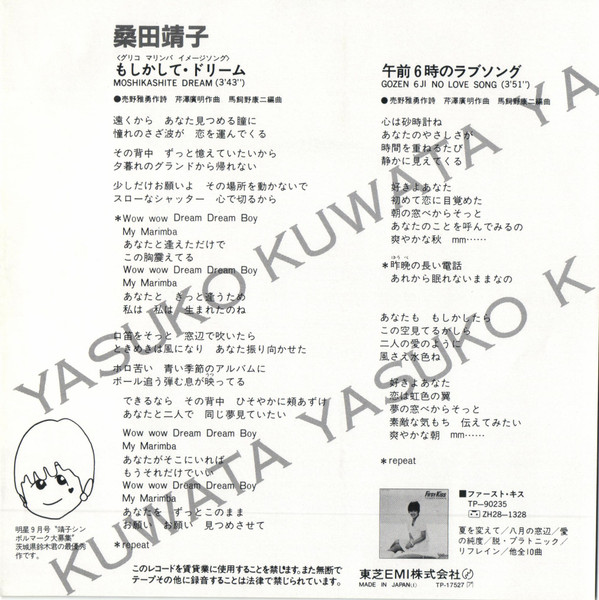 桑田靖子
〈グリコ マリンバ イメージソング〉
もしかして・ドリーム
MOSHIKASHITE DREAM (3'43")
●売野雅勇作詩 芹澤廣明作曲 馬飼野康二編曲
遠くから あなた見つめる瞳に
憧れのさざ波が 恋を運んでくる
その背中 ずっと憶えていたいから
夕暮れのグランドから帰れない
少しだけお願いよ その場所を動かないで
スローなシャッター 心で切るから
*Wow wow Dream Dream Boy
My Marimba
あなたと逢えただけで
この胸震えてる
Wow wow Dream Dream Boy
My Marimba
あなたと きっと逢うため
私は 私は 生まれたのね
口笛をそっと 窓辺で吹いたら
ときめきは風になり あなた振り向かせた
ホロ苦い 青い季節のアルバムに
ボール追う弾む息が映ってる
できるなら その背中 ひそやかに頬あずけ
あなたと二人で 同じ夢見ていたい
Wow wow Dream Dream Boy
My Marimba
あなたがそこにいれば
もうそれだけでいい
Wow wow Dream Dream Boy
My Marimba
あなたを ずっとこのまま
お願い お願い 見つめさせて
*repeat
午前6時のラブソング
GOZEN 6JI NO LOVE SONG (3'51")
●売野雅勇作詩 芹澤廣明作曲 馬飼野康二編曲
心は砂時計ね
あなたのやさしさが
時間を重ねるたび
静かに見えてくる
好きよあなた
初めて恋に目覚めた
朝の窓べからそっと
あなたのことを呼んでみるの
爽やかな秋 mm……
ゆうべ
*昨晩の長い電話
あれから眠れないままなの
あなたも もしかしたら
この空見てるかしら
二人の愛のように
風さえ水色ね
好きよあなた
恋は虹色の翼
夢の窓べからそっと
素敵な気もち 伝えてみたい
爽やかな朝 mm……
*repeat
明星9月号 "靖子シン
ボルマーク大募集"
茨城県鈴木君の最優秀
作です。
First Kiss
■ファースト・キス
TP-90235
ZH28-1328
夏を変えて/八月の窓辺/愛
の純度/脱・プラトニック/
リフレイン/他全10曲
このレコードを賃貸業に使用することを禁じます。また無断で
テープその他に録音することは法律で禁じられています。
東芝EMI株式会社
MADE IN JAPAN TP-17527
YASUKO KUWATA YA
KUWATA YASUKO K